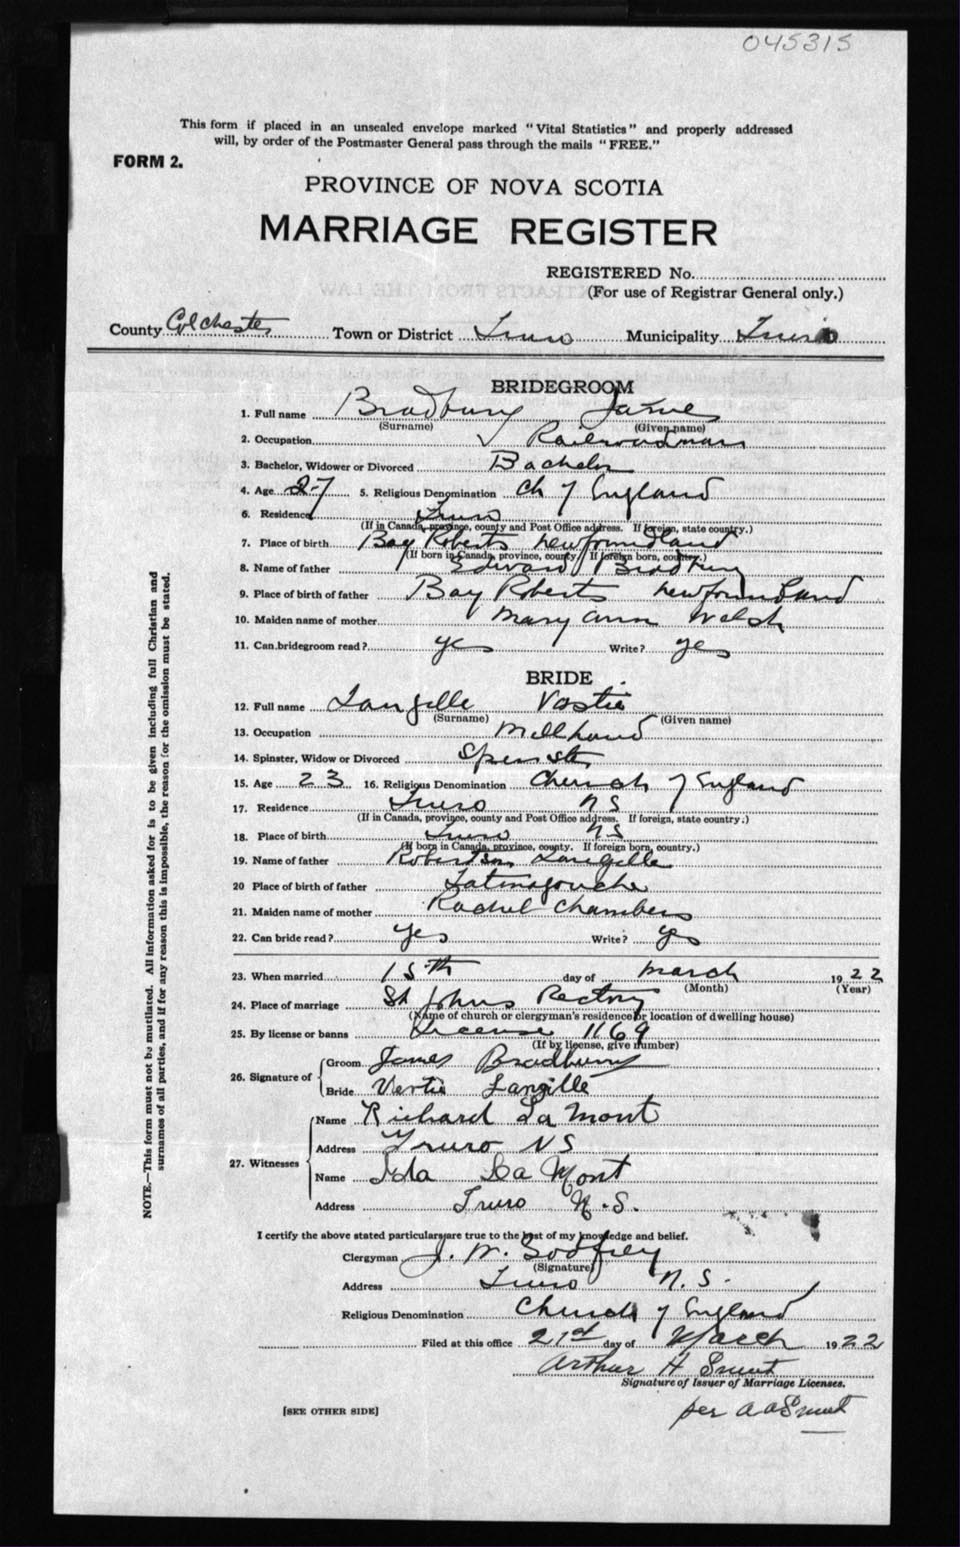 045315
This form if placed in an unsealed envelope marked "Vital Statistics" and properly addressed
will, by order of the Postmaster General pass through the mails "FREE."
FORM 2.
PROVINCE OF NOVA SCOTIA
MARRIAGE REGISTER
REGISTERED No.
(For use of Registrar General only.)
County Colchester Town or District Truro Municipality Truro
BRIDEGROOM
1. Full name Bradbury James
(Surname) (Given name)
2. Occupation ✓ Railroadman
3. Bachelor, Widower or Divorced Bachelor
4. Age 27 5. Religious Denomination Ch of England
6. Residence Truro
(If in Canada, province, county and Post Office address. If foreign, state country.)
7. Place of birth Bay Roberts Newfoundland
(If born in Canada, province, county. If foreign born, country.)
8. Name of father Edward Bradbury
9. Place of birth of father Bay Roberts Newfoundland
10. Maiden name of mother Mary Ann Welsh
11. Can bridegroom read? yes Write? yes
BRIDE
12. Full name Langille Vastie
(Surname) (Given name)
13. Occupation Millhand
14. Spinster, Widow or Divorced Spinster
15. Age 23 16. Religious Denomination Church of England
17. Residence Truro NS
(If in Canada, province, county and Post Office address. If foreign, state country.)
18. Place of birth Truro NS
(If born in Canada, province, county. If foreign born, country.)
19. Name of father Robertson Langille
20 Place of birth of father Tatmagouche
21. Maiden name of mother Rachel Chambers
22. Can bride read? Yes Write? yes
23. When married 15th day of March 1922
(Month) (Year)
24. Place of marriage St Johns Rectory
(Name of church or clergyman's residence or location of dwelling house)
25. By license or banns License 1169
(If by license, give number)
26. Signature of
Groom James Bradbury
Bride Langille
27. Witnesses
Name Richard La Mont
Address Truro NS
Name Ida La Mont
Address Truro N.S.
I certify the above stated particulars are true to the best of my knowledge and belief.
Clergyman J. W. Godfrey
(Signature)
Address Truro N.S.
Religious Denomination Church of England
Filed at this office 21st day of March 1922
Arthur H Smut
Signature of Issuer of Marriage Licenses.
[SEE OTHER SIDE]
per
NOTE.—This form must not be mutilated. All information asked for is to be given including full Christian and
surnames of all parties, and if for any reason this is impossible, the reason for the omission must be stated.